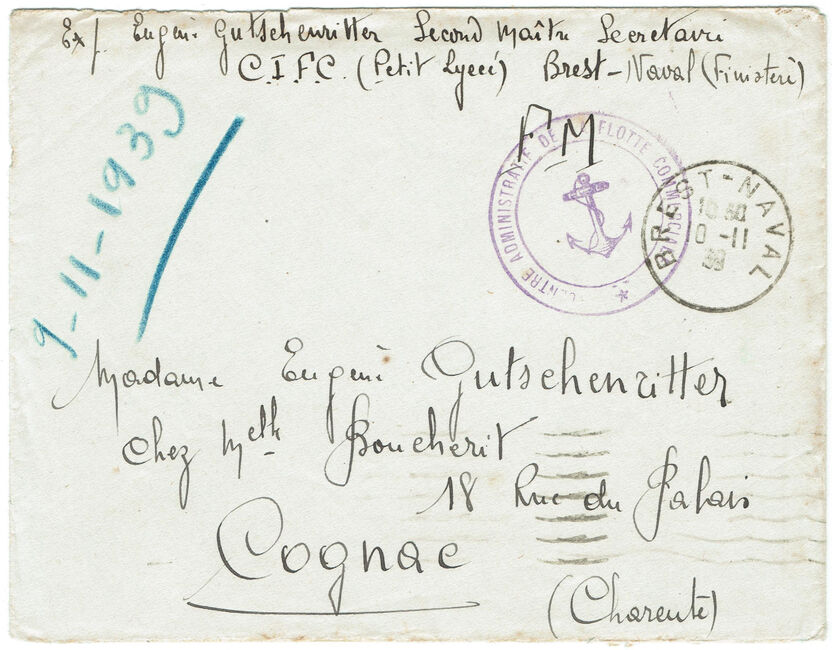 Ex/. Eugène Gutschenritter Second Maître Secretaire
C.I.F.C. (Petit Lycée) Brest-Naval (Finistère)
FM
CENTRE ADMINISTRATIF DE LA FLOTTE COMMERCIALE
BREST-NAVAL
10 30
10 -11
39
9-11-1939
Madame Eugène Gutschenritter
Chez Melle Boucherit
18 Rue du Palais
Cognac
(Charente)